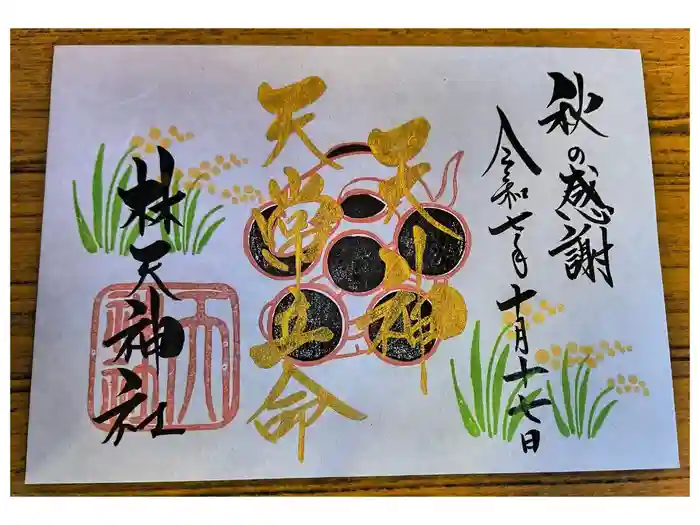 秋の感謝
令和七年十月十七日
天川神
天常立命
林天神社